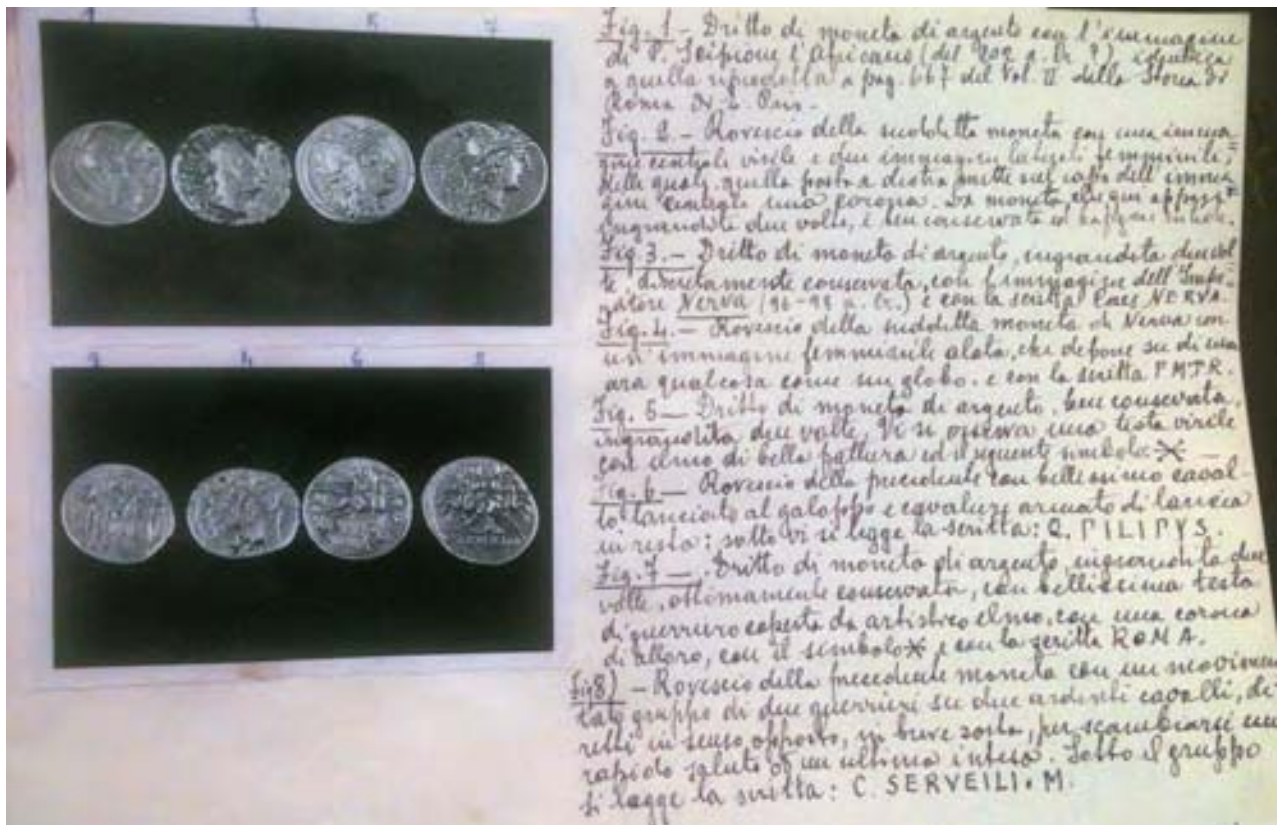 1 3 5 7
2 4 6 8
Fig. 1 - Dritto di moneta di argento con l'immagine
di P. Scipione l'Africano (del 202 a. Cr. ?) identica
a quella riprodotta a pag. 667 del Vol. II della Storia di
Roma di E. Pais.
Fig. 2. - Rovescio della suddetta moneta con una imma-
gine centrale virile e due immagini laterali femminili,
delle quali quella posta a destra mette sul capo dell'imma
gine centrale una corona. La moneta, che qui
ingrandita due volte, è ben conservata
Fig. 3. - Dritto di moneta di argento, ingrandita due vol
te, discretamente conservata, con l'immagine dell'Impe-
ratore Nerva (96-98 a. Cr.) e con la scritta Caes NERVA.
Fig. 4. - Rovescio della suddetta moneta di Nerva con
un'immagine femminile alata, che depone su di una
ara qualcosa come un globo. e con la scritta P M T R.
Fig. 5 - Dritto di moneta di argento, ben conservata,
ingrandita due volte. Vi si osserva una testa virile
con elmo di bella fattura ed il seguente simbolo: X
Fig. 6 - Rovescio della precedente con bellissimo caval-
lo lanciato al galoppo e cavaliere armato di lancia
in resta: sotto vi si legge la scritta: Q. PILIPYS.
Fig. 7 - Dritto di moneta di argento, ingrandita due
volte, ottimamente conservata, con bellissima testa
di guerriero coperta da artistico elmo, con una corona
di alloro, con il simbolo X e con la scritta ROMA.
Fig 8) - Rovescio della precedente moneta con un movimen
tato gruppo di due guerrieri su due ardenti cavalli, di
retti in senso opposto, in breve sosta, per scambiarsi un
rapido saluto o un'ultima intesa. Sotto il gruppo
si legge la scritta: C. SERVEILI. M.